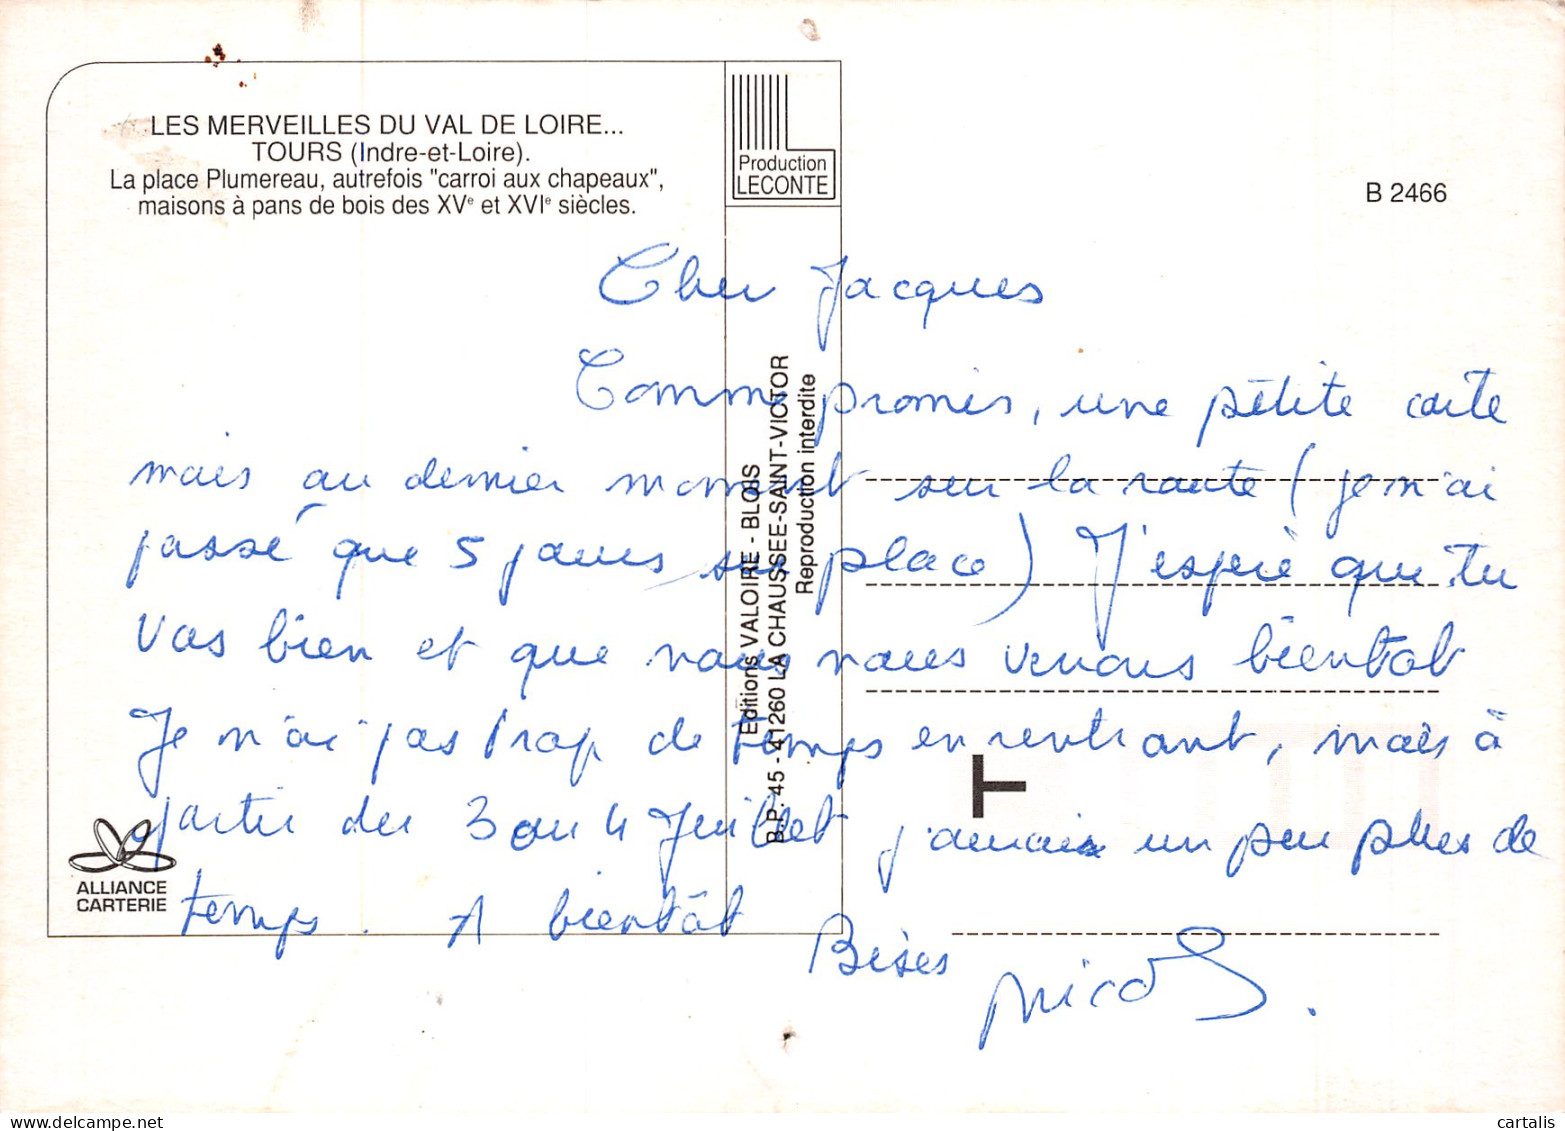 LES MERVEILLES DU VAL DE LOIRE...
TOURS (Indre-et-Loire).
La place Plumereau, autrefois "carroi aux chapeaux",
maisons à pans de bois des XVe et XVIe siècles.
Production
LECONTE
B 2466
Cher Jacques
Comme promis, une petite carte
mais au dernier moment sur la route (je n'ai
passé que 5 jours sur place) J'espère que tu
vas bien et que nous nous verrons bientot
Je n'ai pas trop de temps en rentrant, mais à
partir du 3 ou 4 Juillet j'aurais un peu plus de
temps. A bientôt Bises
Nicole
Editions VALOIRE - BLOIS
B.P. 45 - 41260 LA CHAUSSEE-SAINT-VICTOR
Reproduction interdite
T
ALLIANCE
CARTERIE
cartalis